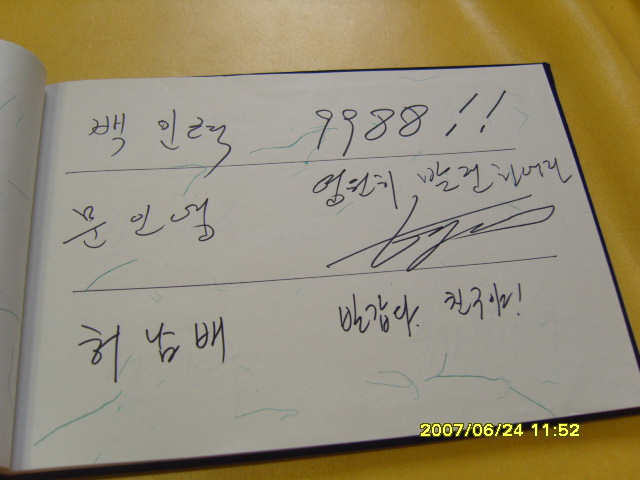 백인력 9988!!
영원히 발전하여라
문인섭
허남배 반갑다. 친구야!
2007/06/24 11:52